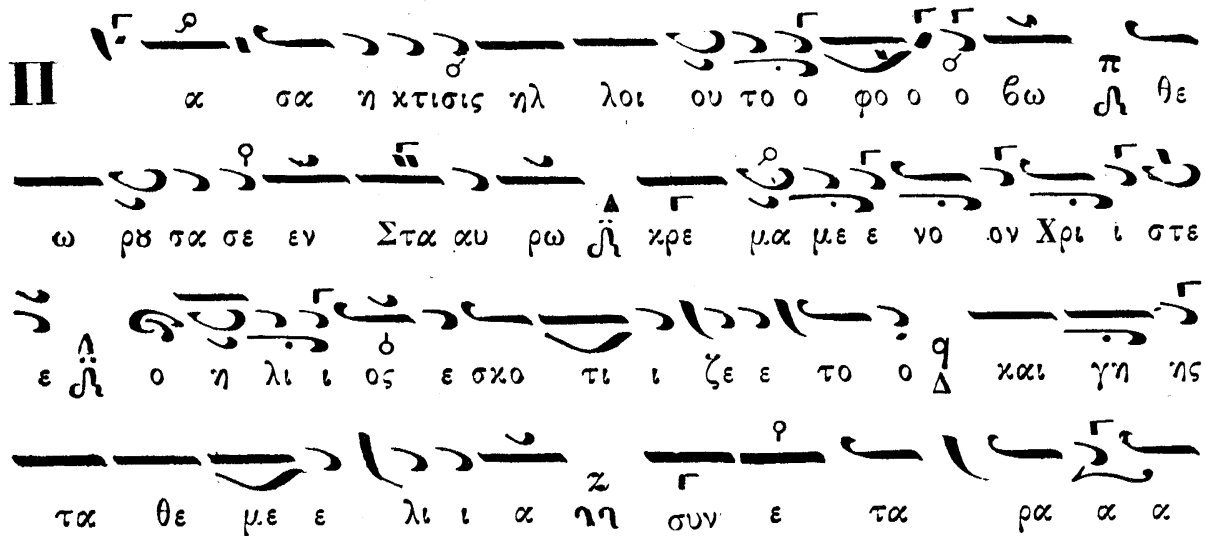 Π α σα η κτισις ηλ λοι ου το ο φο ο ο βω π θε
ω ρȣ σα σε εν Στα αυ ρω Δ κρε μα με ε νο ον Χρι ι στε
ε ο η λι ι ος ε σκο τι ι ζε ε το ο q Δ και γη ης
τα θε με ε λι ι α z συν ε τα ρα α α